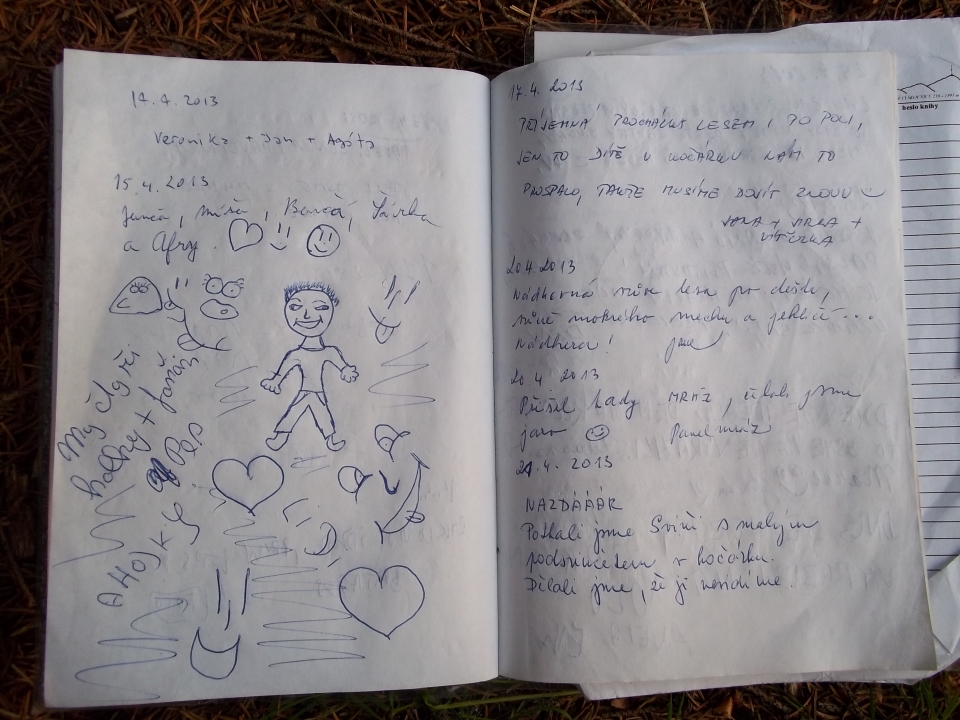 14.4.2013
Veronika + Jan + Agáta
15.4.2013
Míša, Bára, Sárka
a Afry.
My čtyři
holky +
a Pes
AHOJKY
17.4. 2013
PŘÍJEMNÁ PROCHÁZKA LESEM I PO POLI,
JEN TO DÍTĚ V KOČÁRKU NÁM TO
PROSPALO, TAKŽE MUSÍME DOJÍT ZNOVU
JANA + MIRKA +
20.4.2013
Nádherná vůně lesa po dešti,
vůně mokrého mechu a jehličí...
Nádhera!
20.4. 2013
Přišel tady MRÁZ, čekali jsme
jaro Pavel mráz
21.4. 2013
NAZDÁÁÁR
Potkali jsme Svini s malým
podsvinčetem v kočárku.
Dělali jsme, že ji nevidíme.
heslo knihy